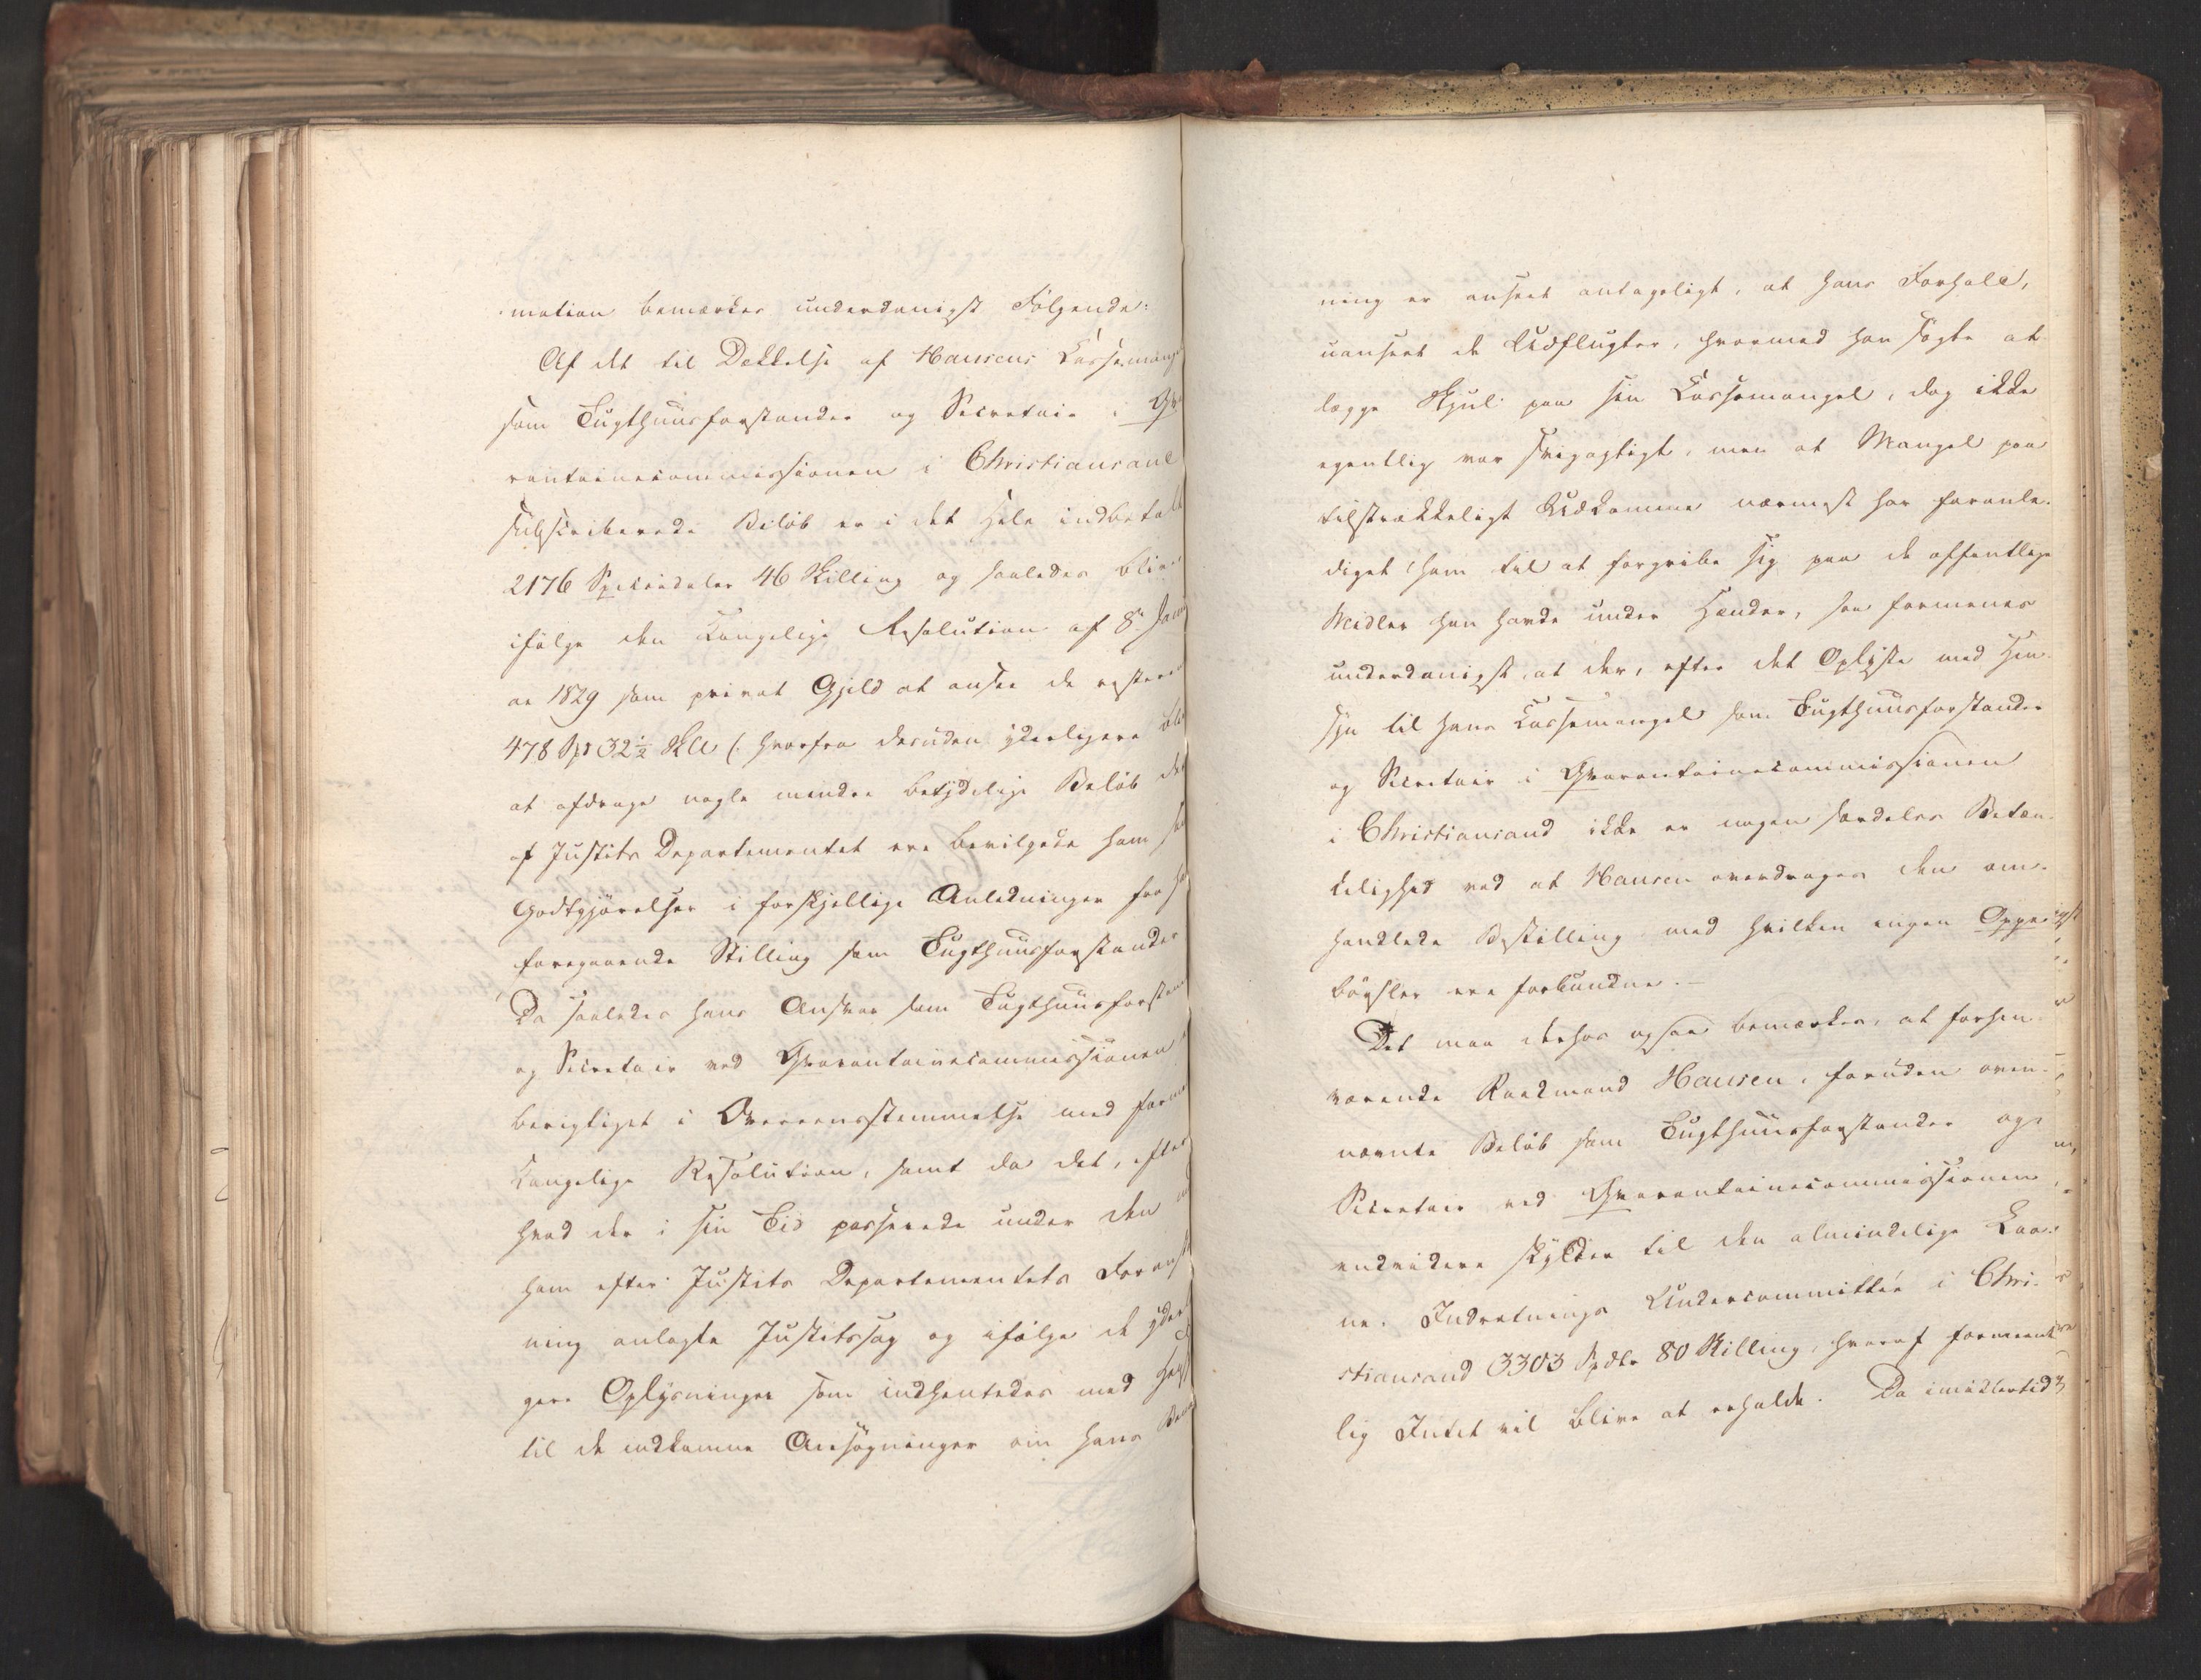 mation bemærkes underdanigst Følgende:
Af det til Dækkelse af Hansens Kassemang
som Tugthuusforstander og Secretair i Qva
rantainecommissionen i Christiansand
subscriberede Beløb er i det Hele indbetalt
2176 Speciedaler 46 Skilling og saaledes bliver
ifølge den Kongelige Resolution af 8de Janu
ar 1829 som privat Gjeld at ansee de resteren
478 Spd 32½ Skl (: hvorfra desuden yderligere bli
at afdrage nogle mindre betydelige Beløb der
af Justits Departementet ere bevilgede ham som
Godtgjørelser i forskjellige Anledninger for hans
foregaaende Stilling som Tugthuusforstander
Da saaledes hans Ansvar som Tugthuusforstan
og Secretair ved Qvarantainecommissionen
berigtiget i Overeensstemmelse med forme
Kongelige Resolution, samt da det, efter
hvad der i sin Tid passerede under den
ham efter Justits Departementets Foranst
ning anlagte Justitssag og ifølge de yderli
gere Oplysninger som indhentedes med Hens
til de indkomne Ansøgninger om hans Ben
ning er anseet antageligt, at hans Forhold,
uanseet de Udflugter, hvormed han søgte at
lægge Skjul paa sin Kassemangel, dog ikke
egentlig var svigagtigt, men at Mangel paa
tilstrækkeligt Udkomme nærmest har foranle-
diget ham til at forgribe sig paa de offentlige
Midler han havde under Hænder, saa formenes
underdanigst, at der, efter det Oplyste med Hen-
syn til hans Kassemangel som Tugthuusforstander
og Secretair i Qvarantainecommissionen
i Christiansand ikke er nogen særdeles Betæn-
kelighed ved at Hansen overdrages den om-
handlede Bestilling med hvilken ingen Oppe-
børsler ere forbundne.-
Det maa derhos ogsaa bemærkes, at forhen-
værende Raadmand Hansen, foruden oven-
nævnte Beløb som Tugthuusforstander og
Secretair ved Qvarantainecommissionen,
endvidere skylder til den almindelige Laa-
ne-Indretnings Undercommittée i Chri-
stiansand 3303 Spdlr 80 Skilling, hvoraf formeent-
lig Intet vil blive at erholde. Da imidlertid